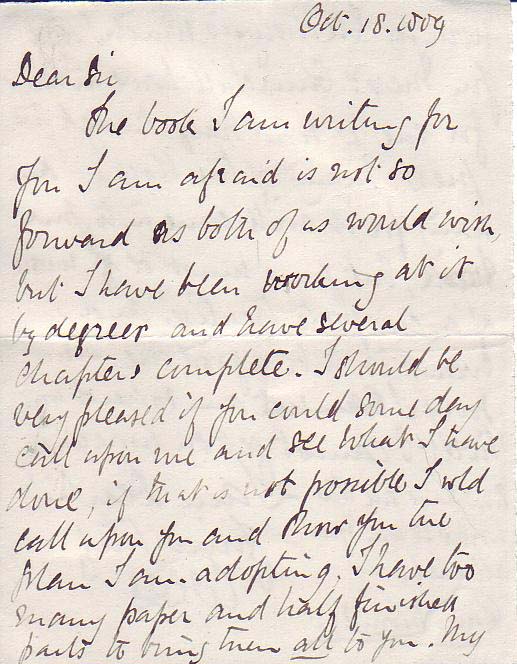 Oct. 18. 1809
Dear Sir
The book I am writing for
you I am afraid is not so
forward as both of us would wish,
but I have been working at it
by degrees and have several
chapters complete. I should be
very pleased if you could some day
call upon me and see what I have
done, if that is not possible I wld
call upon you and show you the
plan I am adopting. I have too
many paper and half finished
parts to bring them all to you. My